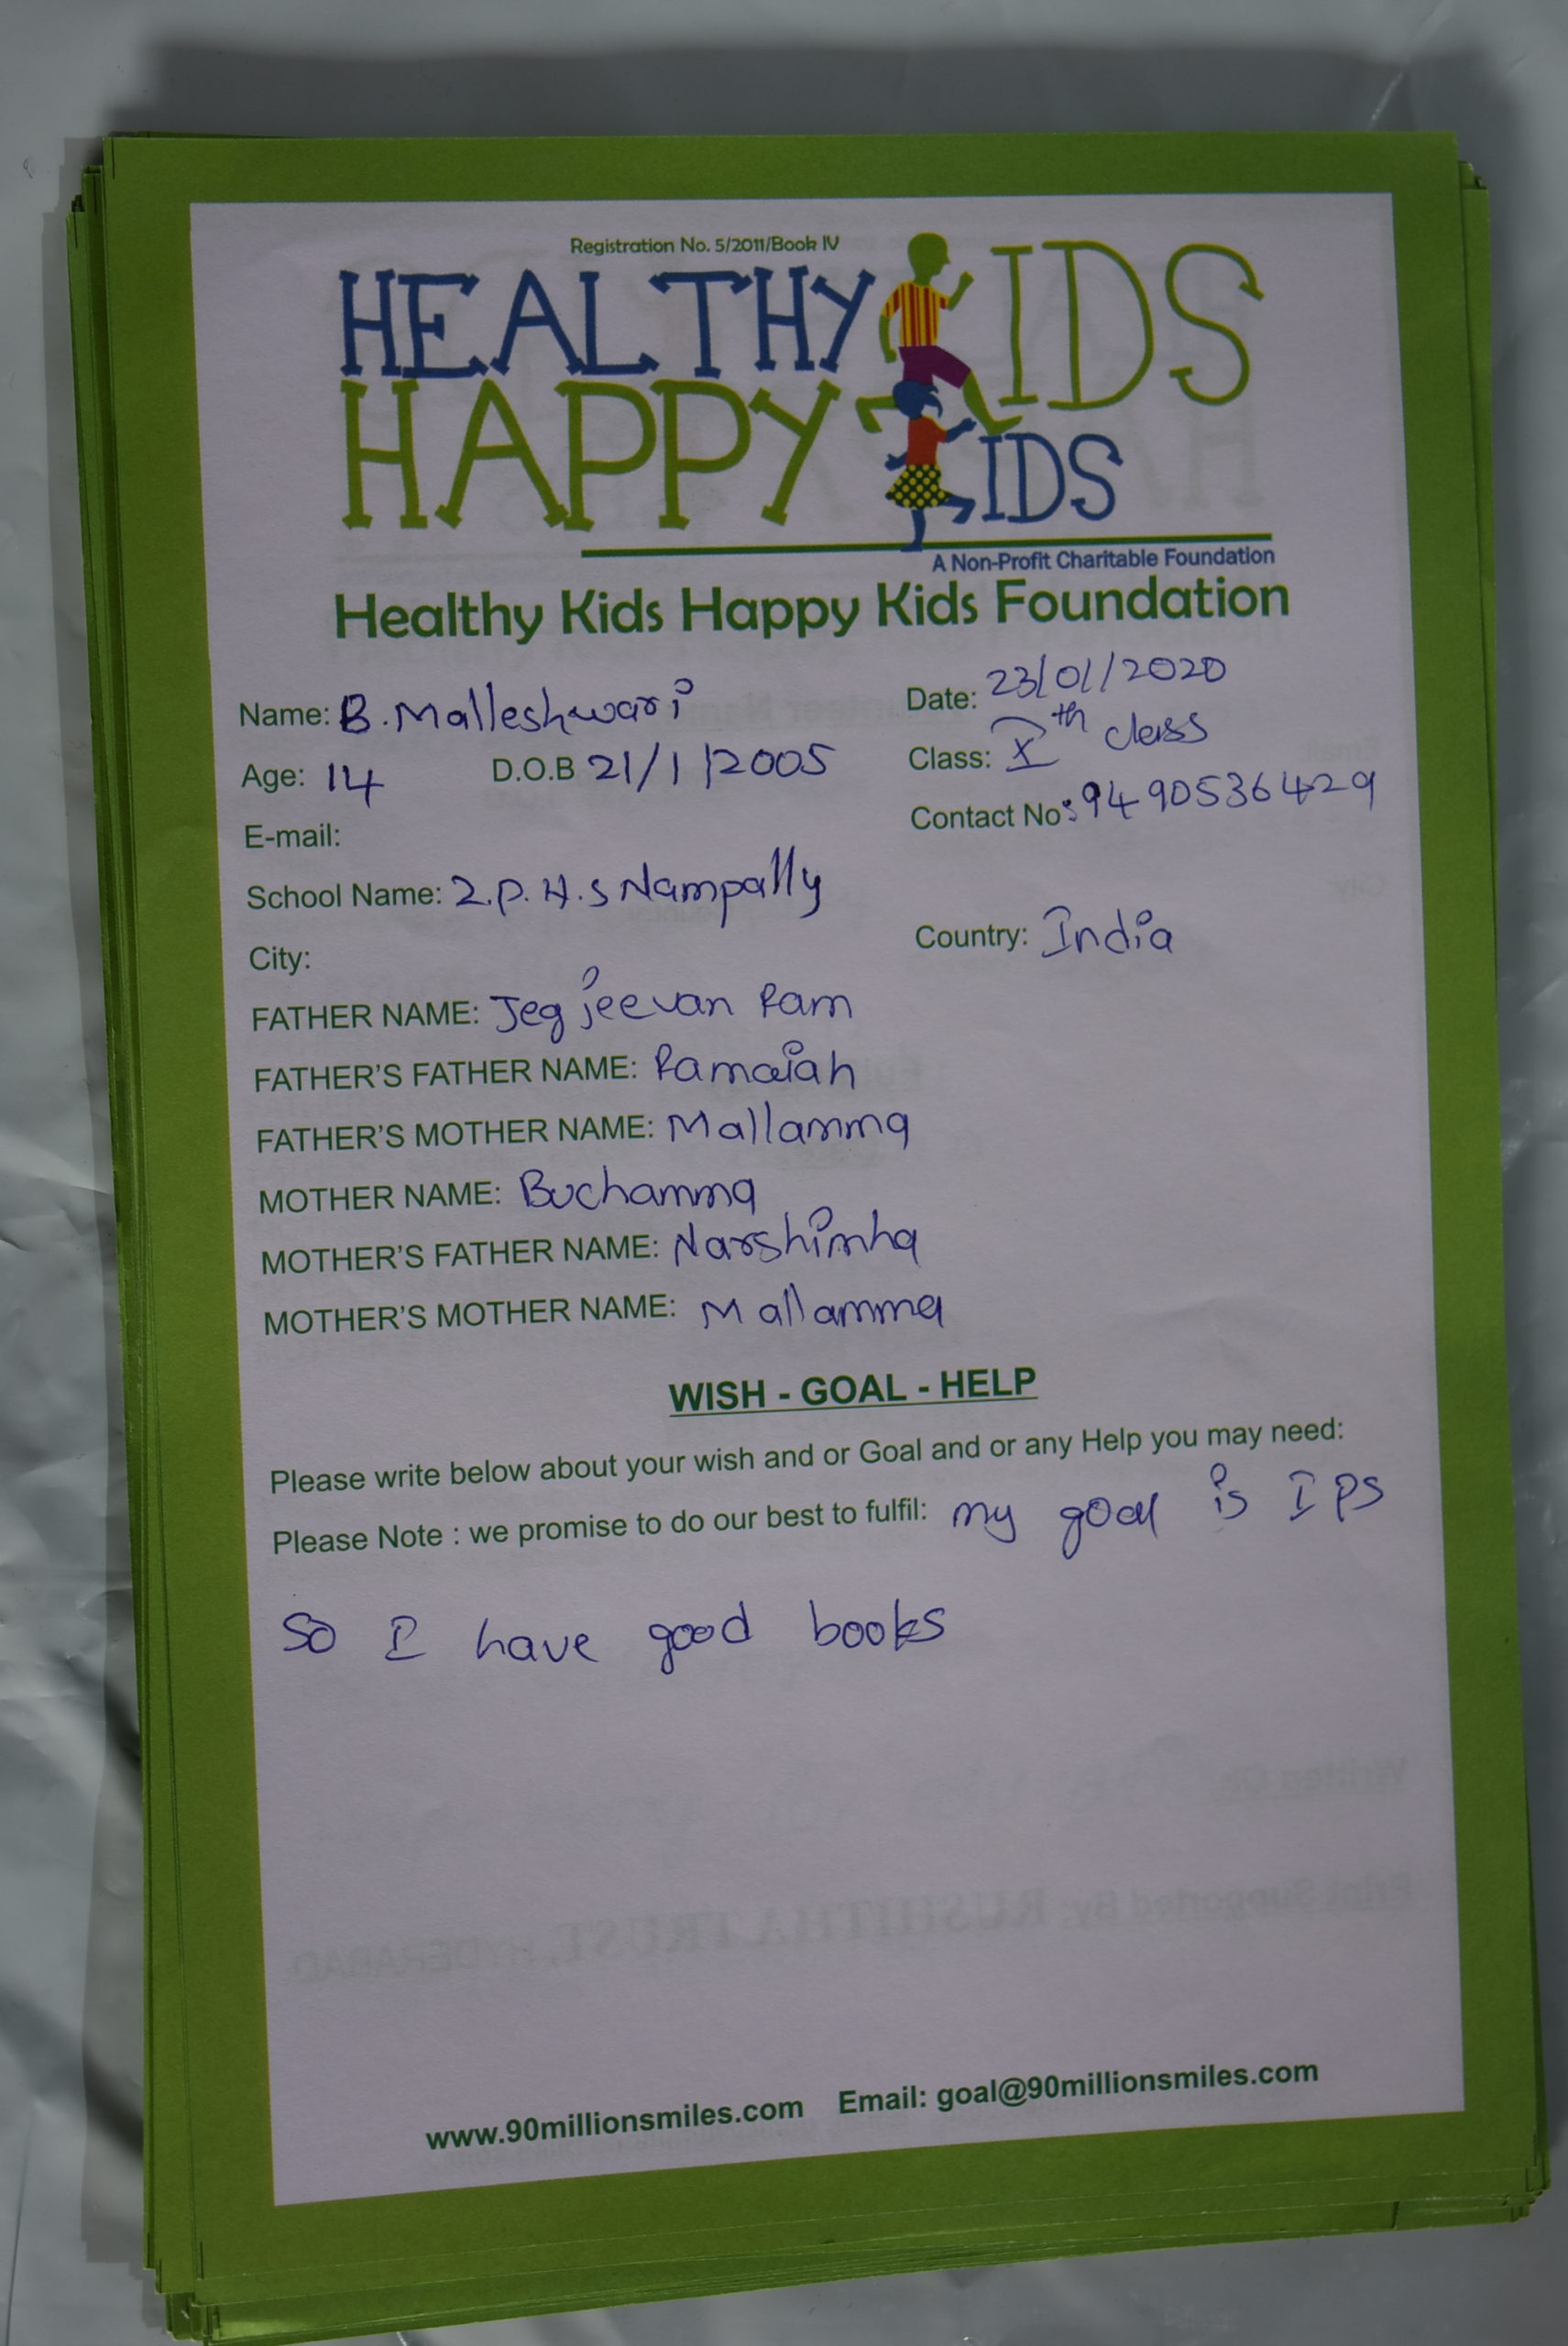 Registration No. 5/2011/Book IV
HEALTHY KIDS
HAPPY KIDS
A Non-Profit Charitable Foundation
Healthy Kids Happy Kids Foundation
Name: B. Malleshwari Date: 23/01/2020
Age: 14 D.O.B 21/1/2005 Class: Xth class
E-mail: Contact No: 9490536429
School Name: Z.P.H.S Nampally
City: Country: India
FATHER NAME: Jegjeevan Ram
FATHER'S FATHER NAME: Ramaiah
FATHER'S MOTHER NAME: Mallamma
MOTHER NAME: Buchamma
MOTHER'S FATHER NAME: Narshimha
MOTHER'S MOTHER NAME: Mallamma
WISH - GOAL - HELP
Please write below about your wish and or Goal and or any Help you may need:
Please Note : we promise to do our best to fulfil: my goal is IPS
So I have good books
www.90millionsmiles.com Email: goal@90millionsmiles.com